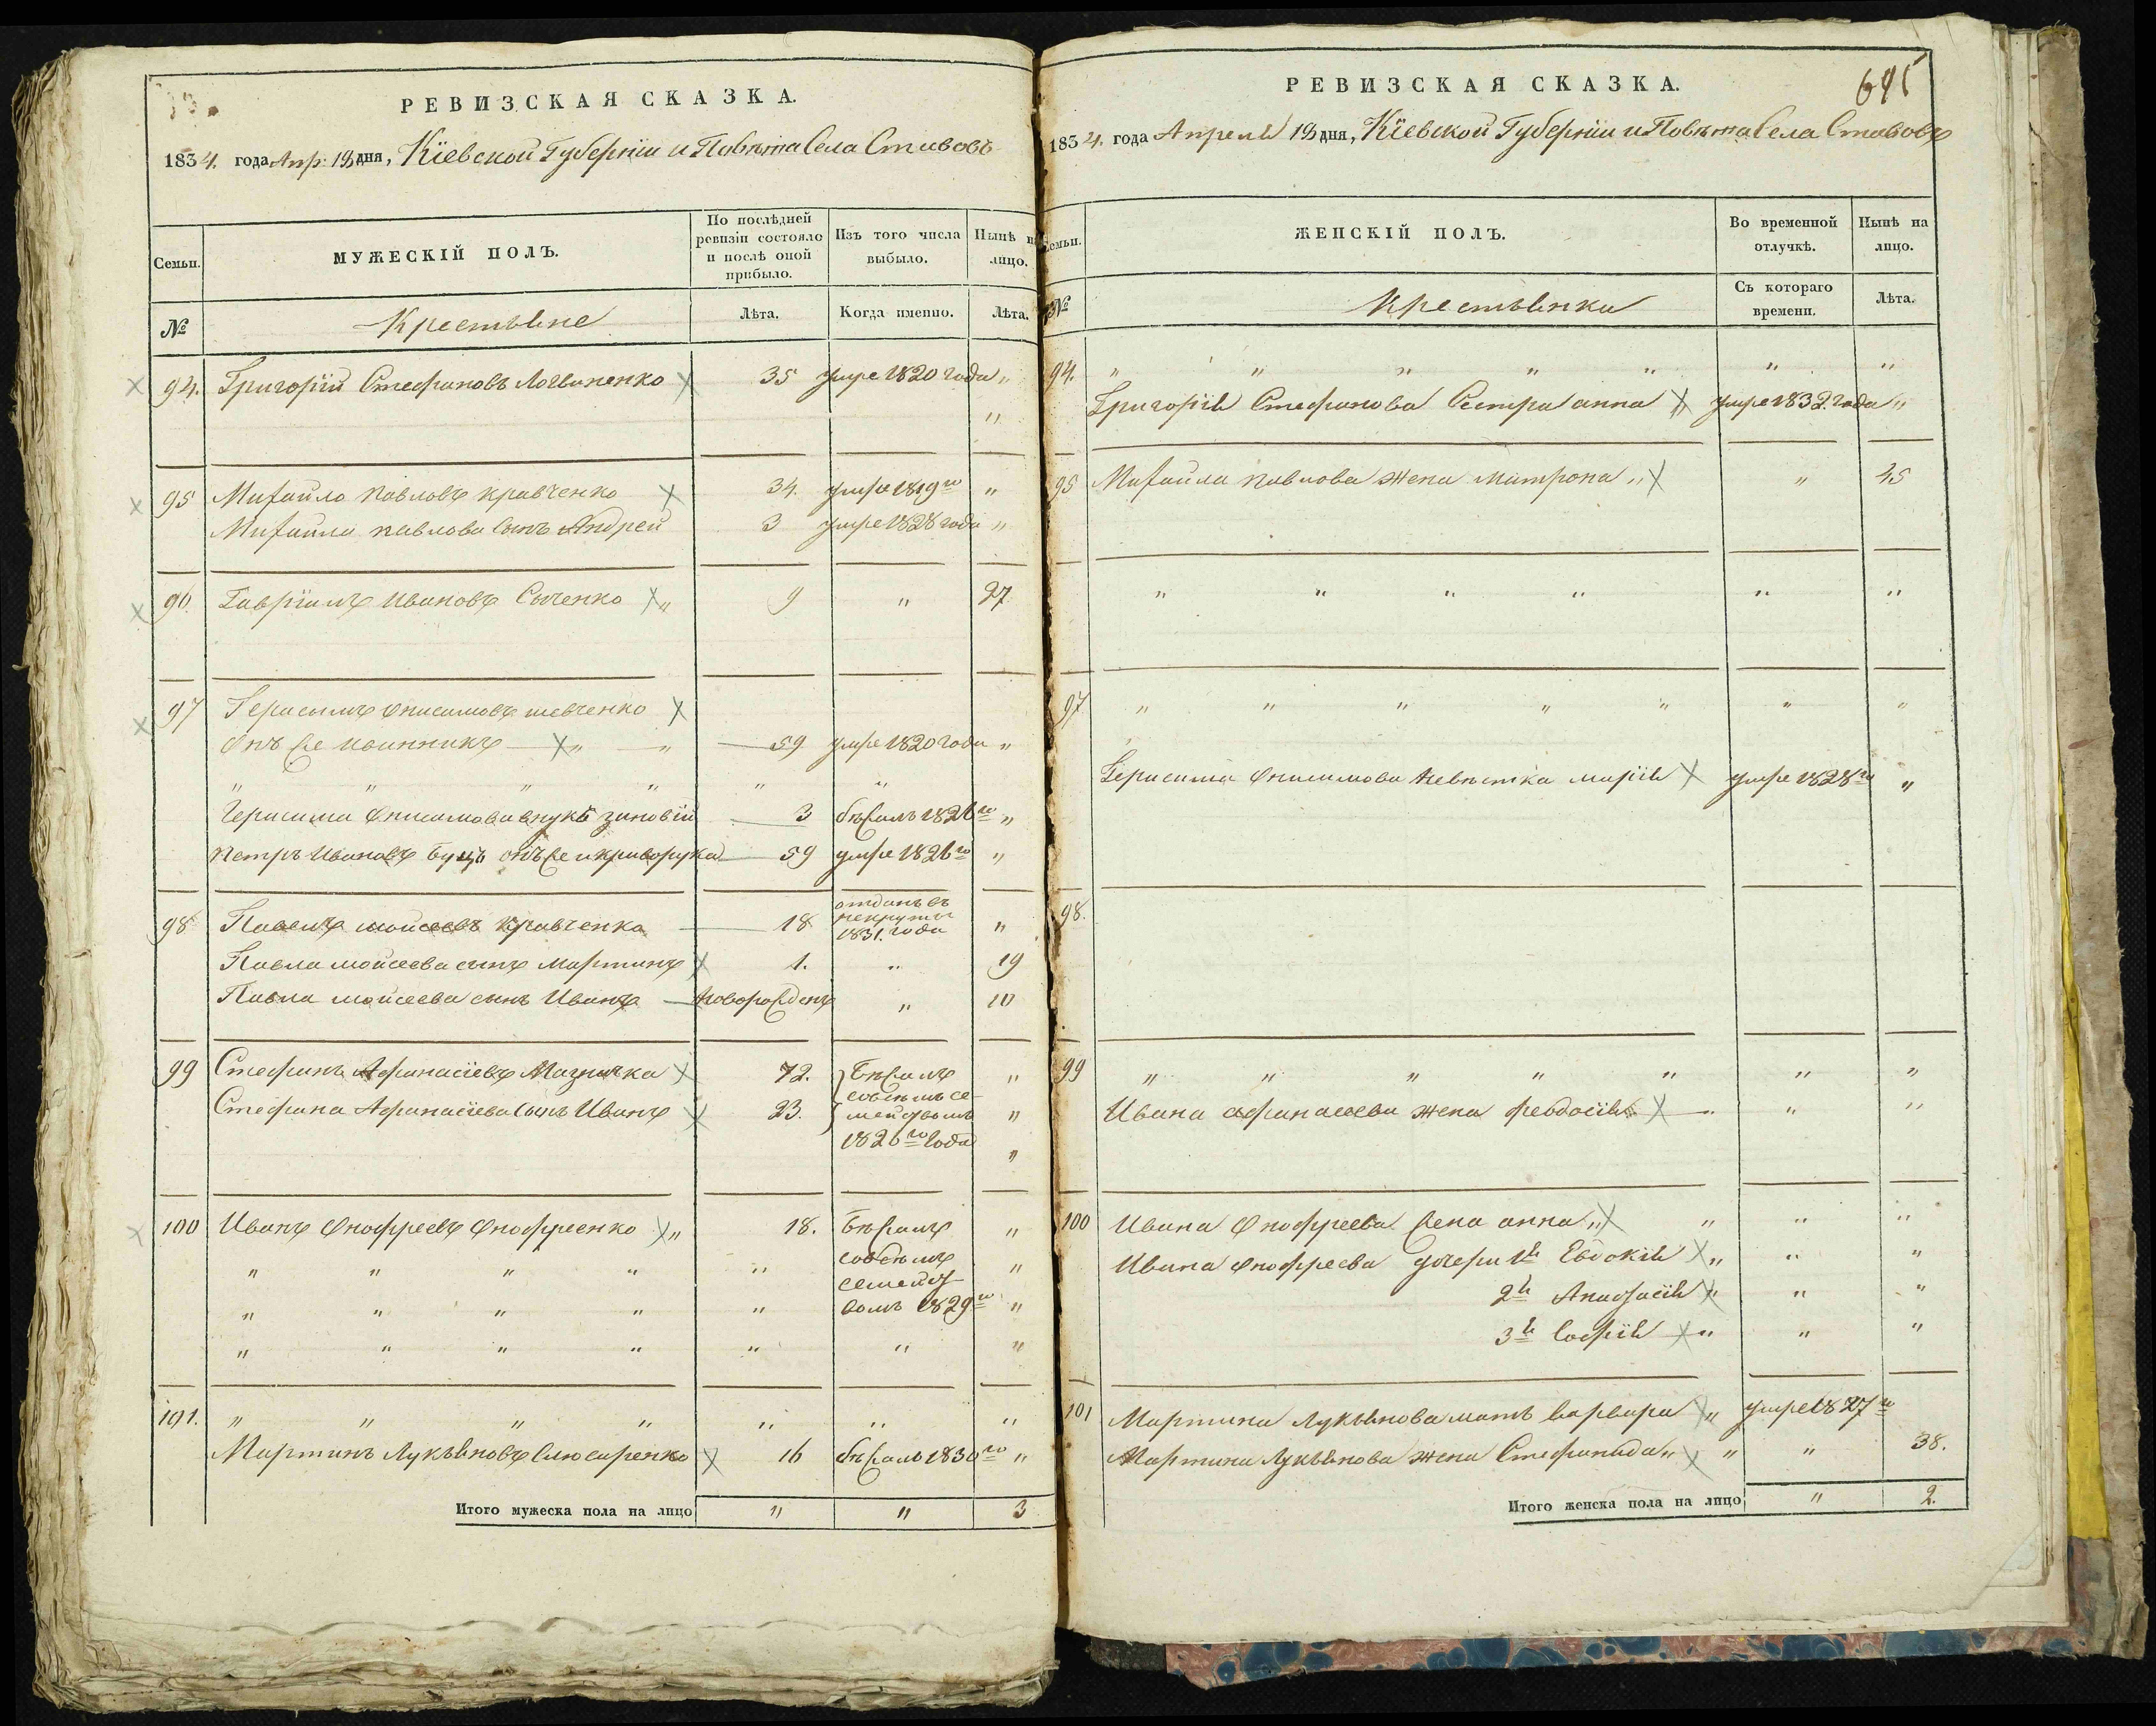 РЕВИЗСКАЯ СКАЗКА.
1834. года Апр: 19 дня, Кіевской Губерніи и Повѣта Села Ставовъ
Семьи.
МУЖЕСКІЙ ПОЛЪ.
По послѣдней ревизіи состояло и послѣ оной прибыло.
Изъ того числа выбыло.
Нынѣ на лицо.
№
Крестьяне
Лѣта.
Когда именно.
Лѣта.
94. Григорій Стефановъ Логвиненко 35 умре 1820 года "
"
95 Михайло Павловъ Кравченко 34. умре 1819го "
Михайла Павлова сынъ Андрей 3 умре 1828 года "
96. Гавріилъ Ивановъ Сыченко " 9 " 27
97 Герасимъ Онисимовъ шевченко
Онъ же " " 59 умре 1820 года "
" " " " " "
Герасима Онисимова внукъ зиновій 3 бѣжалъ 1826го "
Петръ Ивановъ онъ же и криворука 59 умре 1826го "
98 Павелъ мойсеевъ Кравченко 18 отданъ въ рекруты 1831. года "
Павла мойсеева сынъ Мартинъ 1. " 19
Павла мойсеева сынъ Иванъ новорожденъ " 10
99 Стефанъ Афанасіевъ 72. Бѣжалъ "
Стефана Афанасіева сынъ Иванъ 23. совсѣмъ семействомъ "
1826го года "
100 Иванъ Онофреевъ Онофреенко " 18. Бѣжалъ "
" " " " " совсѣмъ "
семейст
" " " " " вомъ 1829го "
" " " " " " "
101. " " " " " " "
Мартинъ Лукьяновъ Слюсаренко 16 бѣжалъ 1830го "
Итого мужеска пола на лицо " " 3
РЕВИЗСКАЯ СКАЗКА.
695
1834. года Апреля 19 дня, Кіевской Губерніи и Повѣта Села Ставовъ
Семьи.
ЖЕНСКІЙ ПОЛЪ.
Во временной отлучкѣ.
Нынѣ на лицо.
№
Крестьянки
Съ котораго времени.
Лѣта.
94. " " " " " " "
Григорія Стефанова Сестра анна " умре 1832. года "
95 Михайла Павлова жена Матрона " " 45
" " " " " "
97 " " " " " " "
Герасима Онисимова невѣстка марія умре 1828го "
98.
99 " " " " " " "
Ивана афанасеева жена февдосія " " "
100 Ивана Онофреева жена анна " " " "
Ивана Онофреева дочери 1я Евдокія " " "
2я Анастасія " " "
3я Софія " " "
101 Мартина Лукьянова мать варвара " умре 1827го
Мартина Лукьянова жена Стефанида " " " 38.
Итого женска пола на лицо " 2.